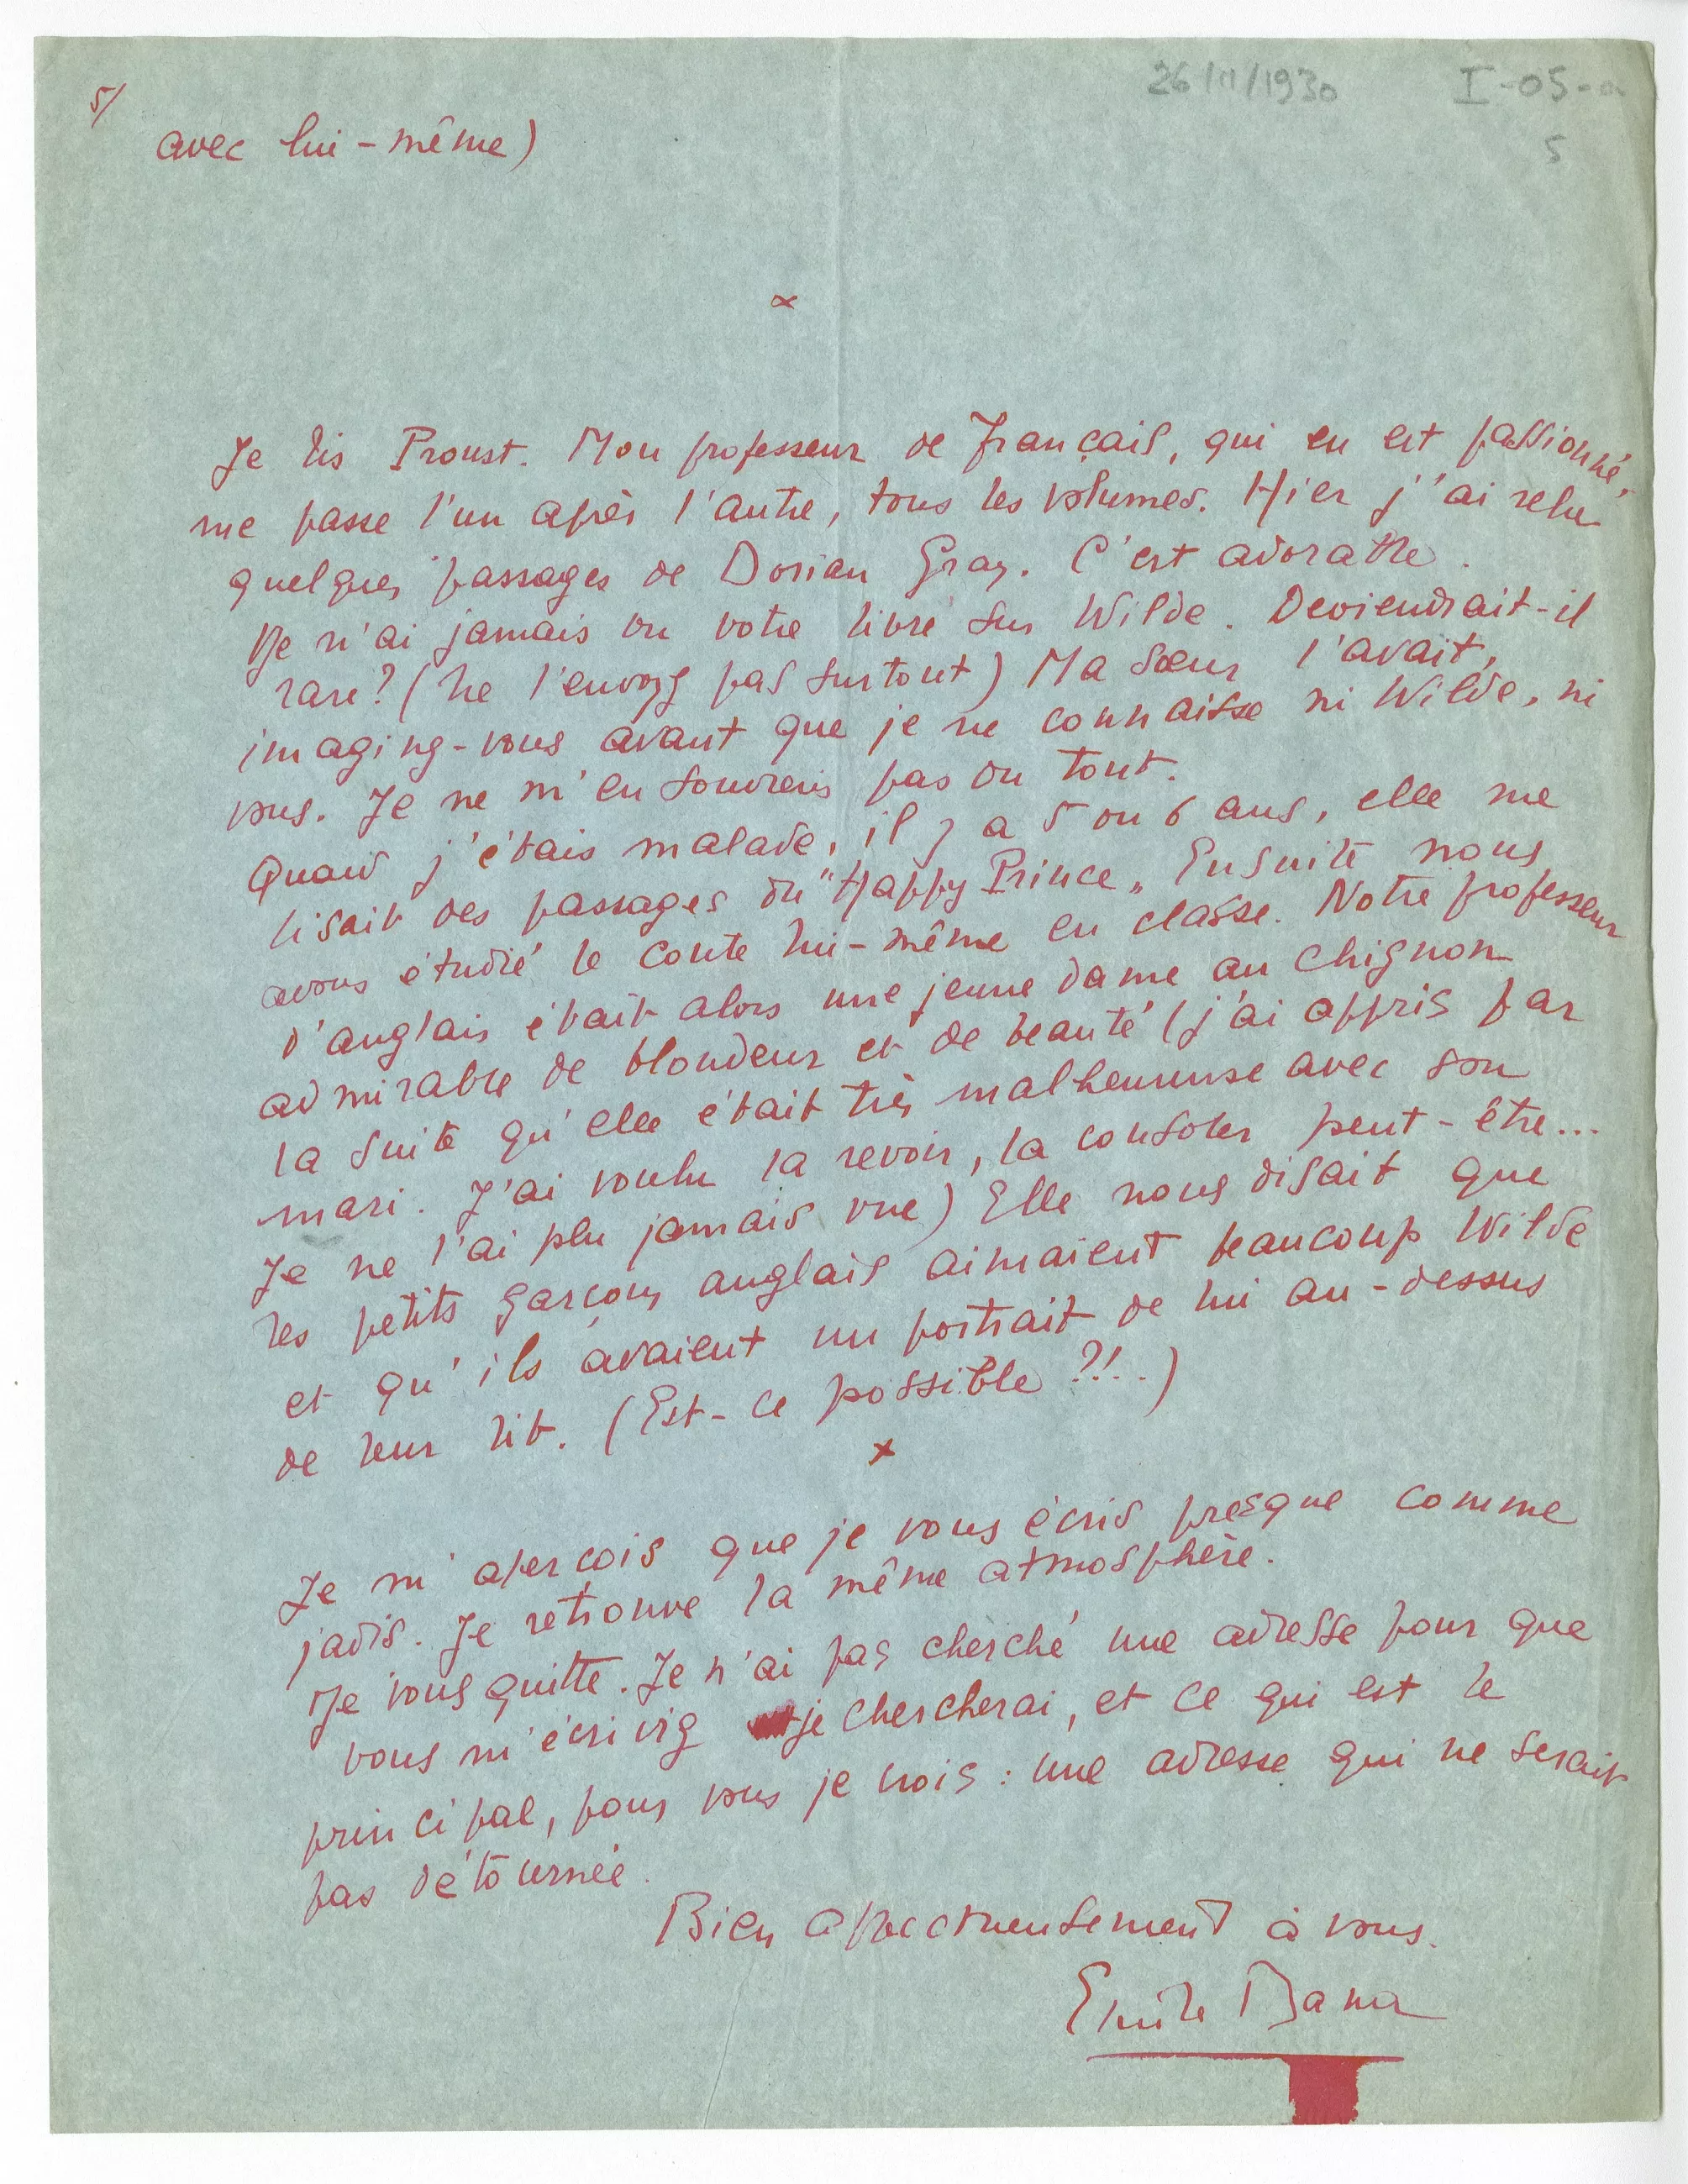 26/III/1930
I-05-a
5
5/
avec lui-même)
x
Je lis Proust. Mon professeur de français, qui en est passionné,
me passe l'un après l'autre, tous les volumes. Hier j'ai relu
quelques passages de Dorian Gray. C'est adorable.
Je n'ai jamais vu votre livre sur Wilde. Deviendrait-il
rare? (Ne l'envoyez pas surtout) Ma sœur l'avait,
imaginez-vous avant que je ne connaisse ni Wilde, ni
vous. Je ne m'en souviens pas du tout.
Quand j'étais malade, il y a 5 ou 6 ans, elle me
lisait des passages du "Happy Prince„ Ensuite nous
avons étudié le conte lui-même en classe. Notre professeur
d'anglais était alors une jeune dame au chignon
admirable de blondeur et de beauté (j'ai appris par
la suite qu'elle était très malheureuse avec son
mari. J'ai voulu la revoir, la consoler peut-être...
Je ne l'ai plu jamais vue) Elle nous disait que
les petits garçons anglais aimaient beaucoup Wilde
et qu'ils avaient un portrait de lui au-dessus
de leur lit. (Est-ce possible ?!..)
x
Je m'apercois que je vous écris presque comme
jadis. Je retrouve la même atmosphère.
Je vous quitte. Je n'ai pas cherché une adresse pour que
vous m'écriviez je chercherai, et ce qui est le
principal, pour vous je crois : une adresse qui ne serait
pas détournée.
Bien affectueusement à vous.
Emile Bana